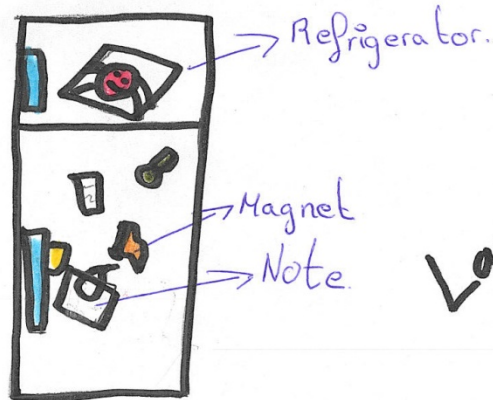 Refrigerator.
Magnet
Note.